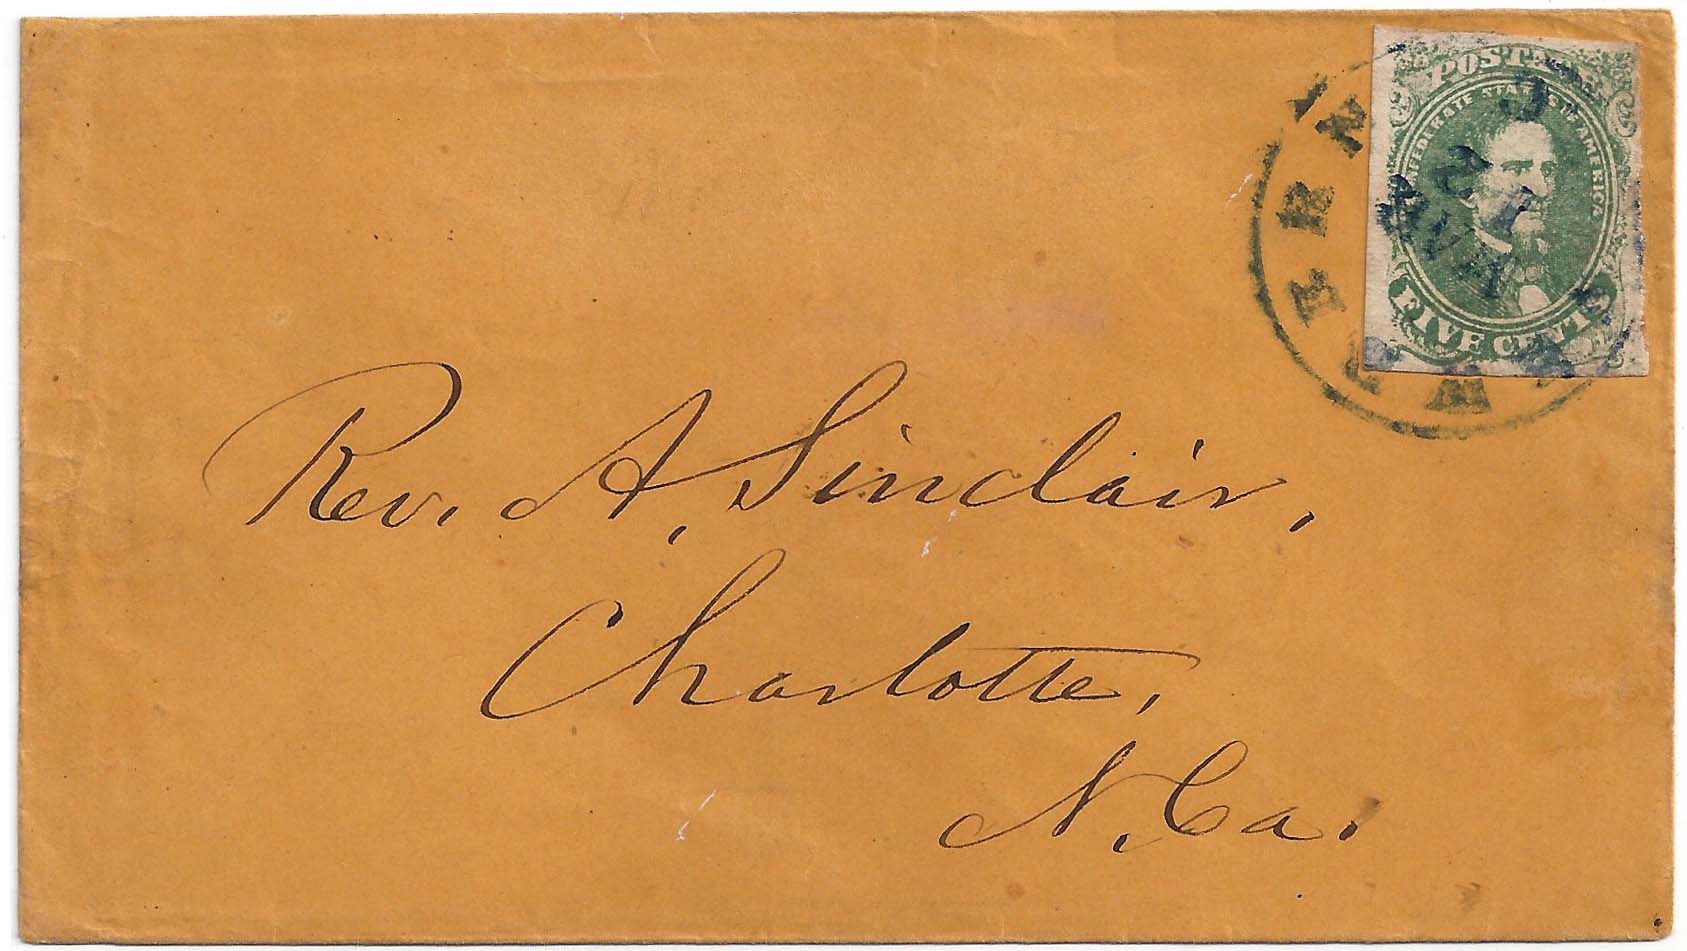 POSTAGE
CONFEDERATE STATES OF AMERICA
FIVE CENTS
NEWBERN
MAR
Rev. A. Sinclair,
Charlotte,
N. Ca.